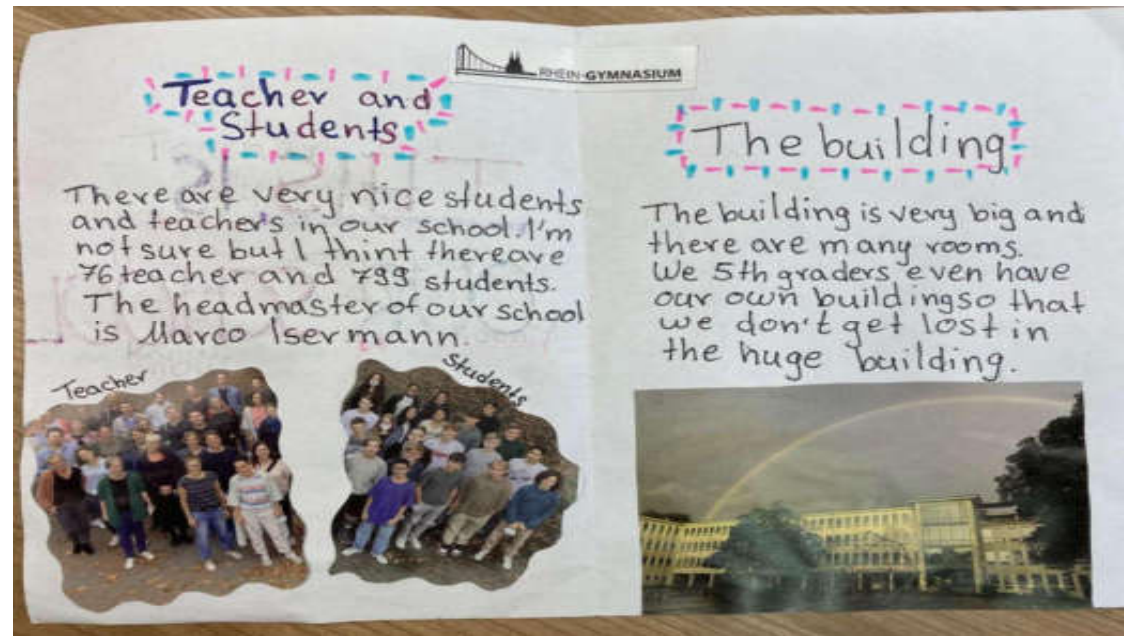 RHEIN-GYMNASIUM
Teacher and
Students
There are very nice students
and teachers in our school. I'm
not sure but I thint thereare
76 teacher and 799 students.
The headmaster of our school
is Marco Isermann.
Teacher
Students
The building
The building is very big and
there are many rooms.
We 5th graders even have
our own building so that
we don't get lost in
the huge building.